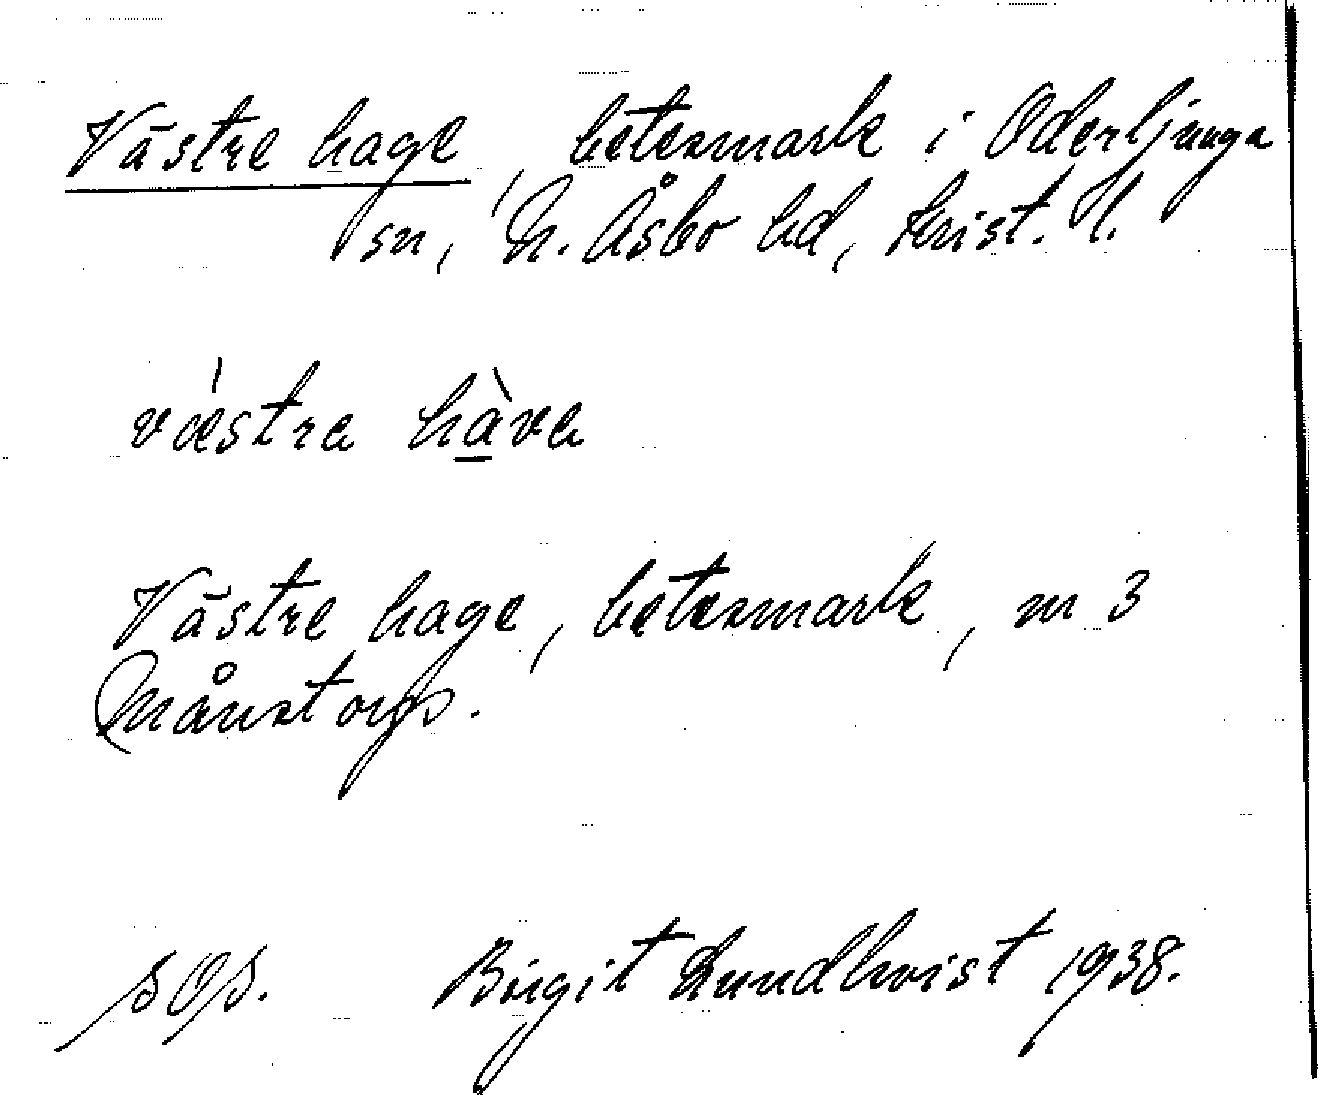 Västre hage, betesmark i Oderljunga
sn, N. Åsbo hd, Krist. l.
vǽstra hàva
Västre hage, betesmark, m 3
Månstorp.
Birgit Lundkvist 1938.